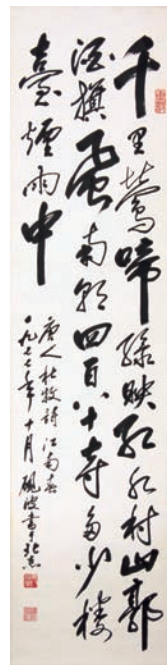 千里鶯啼綠映紅水村山郭
酒旗風南朝四百八十寺多少樓
臺煙雨中
唐人杜牧詩江南春
一九七七年十月硯波書于北京